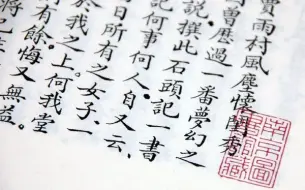 賈雨村風塵懷閨秀
曾歷過一番夢幻之
說撰此石頭記一書
記何事何人自又云
日所有之女子一
於我之上何我堂
有餘悔又無益
將已
南京圖
書館藏